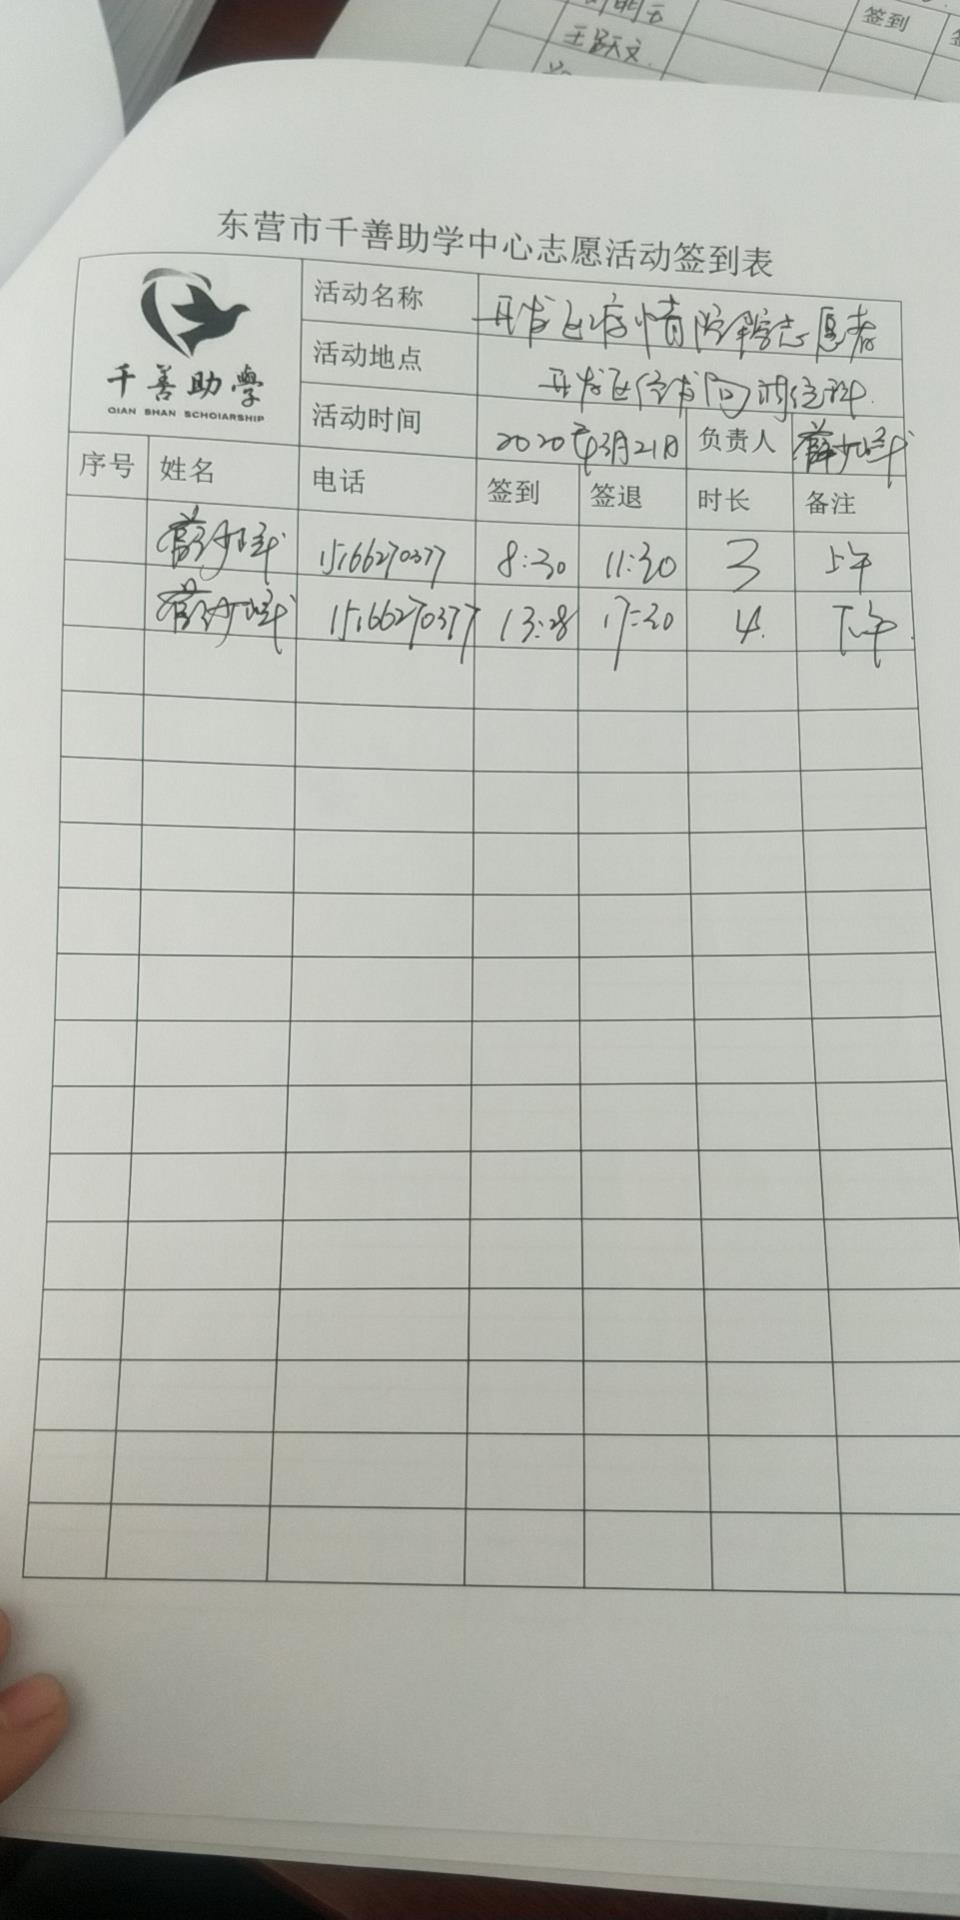 签到
东营市千善助学中心志愿活动签到表
千善助學
QIAN SHAN SCHOLARSHIP
活动名称 开发区疫情防 志愿者
活动地点 开发区
活动时间 2020年3月21日 负责人 薛
序号 姓名 电话 签到 签退 时长 备注
15166270377 8:30 11:30 3 上午
15166270377 13:28 17:30 4. 下午.